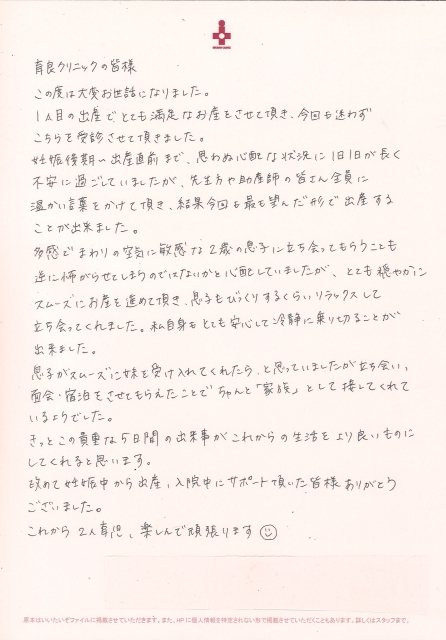 育良クリニックの皆様
この度は大変お世話になりました。
1人目の出産でとても満足なお産をさせて頂き、今回も迷わず
こちらを受診させて頂きました。
妊娠後期〜出産直前まで、思わぬ心配な状況に1日1日が長く
不安に過ごしていましたが、先生方や助産師の皆さん全員に
温かい言葉をかけて頂き、結果今回も最も望んだ形で出産する
ことが出来ました。
多感でまわりの空気に敏感な2歳の息子に立ち会ってもらうことも
逆に怖がらせてしまうのではないかと心配していましたが、とても穏やかに
スムーズにお産を進めて頂き、息子もびっくりするくらいリラックスして
立ち会ってくれました。私自身もとても安心して冷静に乗り切ることが
出来ました。
息子がスムーズに妹を受け入れてくれたら、と思っていましたが立ち会い、
面会・宿泊をさせてもらえたことでちゃんと「家族」として接してくれて
いるようでした。
きっとこの貴重な5日間の出来事がこれからの生活をより良いものに
してくれると思います。
改めて妊娠中から出産、入院中にサポート頂いた皆様ありがとう
ございました。
これから2人育児、楽しんで頑張ります
原本はいいたいぞファイルに掲載させていただきます。また、HPに個人情報を特定されない形で掲載させていただくこともあります。詳しくはスタッフまで。